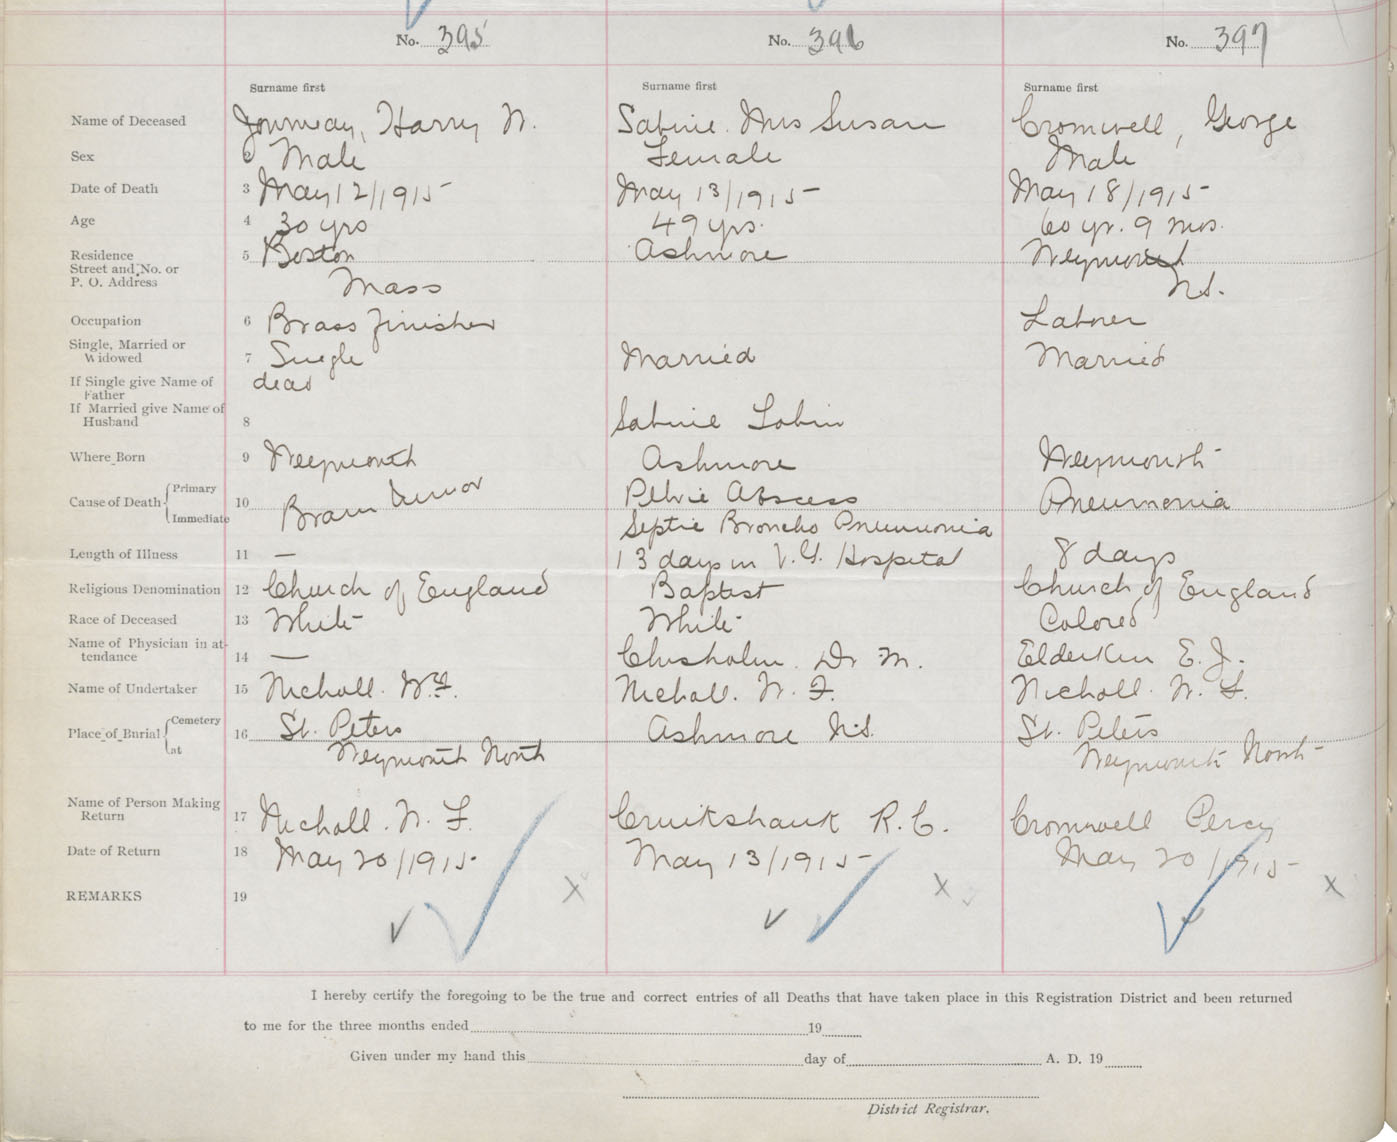 No. 395 No. 396 No. 397
Surname first Surname first Surname first
Name of Deceased Journeay, Harry W. Sabine. Mrs Susan Cromwell, George
Sex 2 Male Female Male
Date of Death 3 May 12/1915 May 13/1915 May 18/1915
Age 4 30 yrs 49 yrs. 60 yr. 9 mos.
Residence 5 Boston Ashmore Weymouth
Street and No. or
P. O. Address Mass N.S.
Occupation 6 Brass finisher Laborer
Single, Married or
Widowed 7 Single Married Married
If Single give Name of dead
Father
If Married give Name of
Husband 8 Sabine Tobin
Where Born 9 Weymouth Ashmore Weymouth
Cause of Death Primary 10 Brain tumor Pelvic Abscess Pneumonia
Immediate Septic Broncho Pneumonia
Length of Illness 11 — 13 days in V.G. Hospital 8 days
Religious Denomination 12 Church of England Baptist Church of England
Race of Deceased 13 White White Colored
Name of Physician in at-
tendance 14 — Chisholm. Dr M. Elderkin E. J.
Name of Undertaker 15 Nicholl. W. F. Nicholl. W. F. Nicholl. W. F.
Place of Burial Cemetery 16 St. Peters Ashmore N.S. St. Peters
at Weymouth North Weymouth North
Name of Person Making
Return 17 Nicholl. W. F. Cruikshank R. C. Cromwell Percy
Date of Return 18 May 20/1915. May 13/1915 May 20/1915
REMARKS 19
I hereby certify the foregoing to be the true and correct entries of all Deaths that have taken place in this Registration District and been returned
to me for the three months ended 19
Given under my hand this day of A. D. 19
District Registrar.